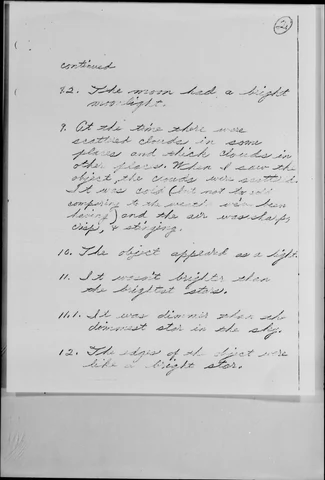 continued
8.2. The moon had a bright
moonlight.
9. At the time there were
scatted clouds in some
places and thick clouds in
other places. When I saw the
object, the clouds were scatted.
It was cold (but not to cold
comparing to the weather we've been
having) and the air was sharp,
crisp, & stinging.
10. The object appeared as a light.
11. It wasn't brighter than
the brightest stars.
11.1. It was dimmer than the
dimmest star in the sky.
12. The edges of the object were
like a bright star.